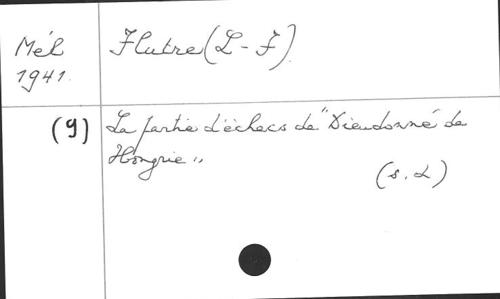 Mél
1941.
Flutre (L-F).
(9)
La partie d'échecs de "Dieudonné de
Hongrie"
(s.d)